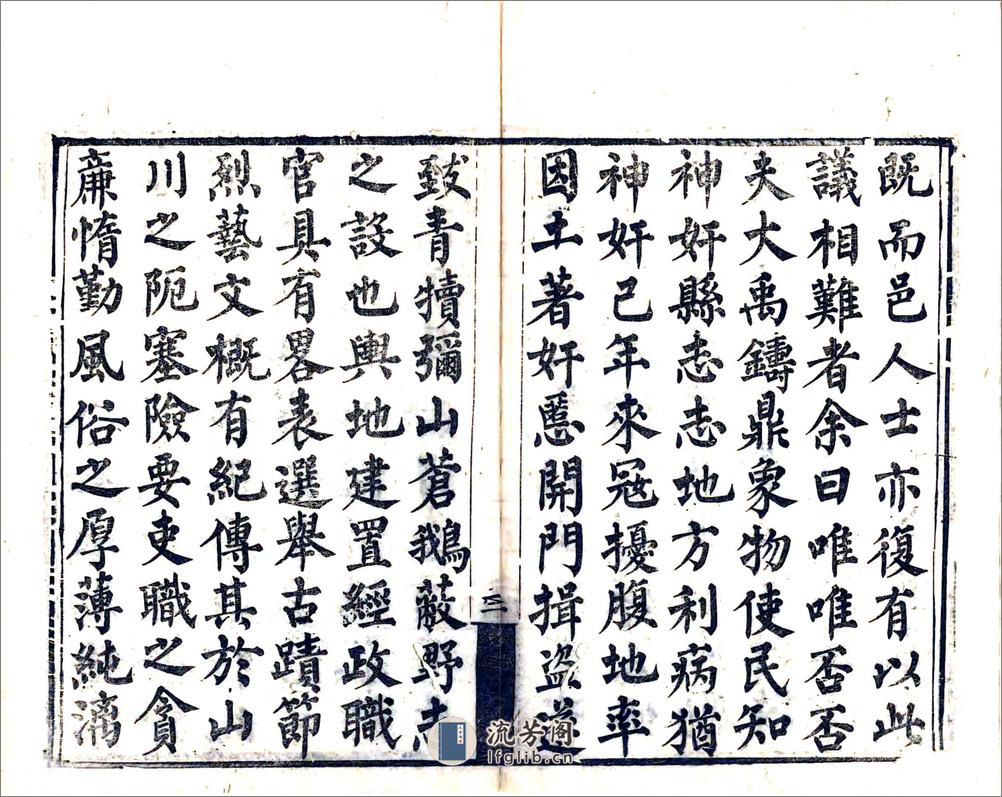 既而邑人士亦復有以此
議相難者余曰唯唯否否
夫大禹鑄鼎象物使民知
神奸縣志志地方利病猶
神奸已年來冦擾腹地率
因土著奸慝開門揖盜遂
三
致青犢彌山蒼鵝蔽野志
之設也輿地建置經政職
官具有畧表選舉古蹟節
烈藝文概有紀傳其於山
川之阨塞險要吏職之貪
廉惰勤風俗之厚薄純漓
流芳阁
lfglib.cn